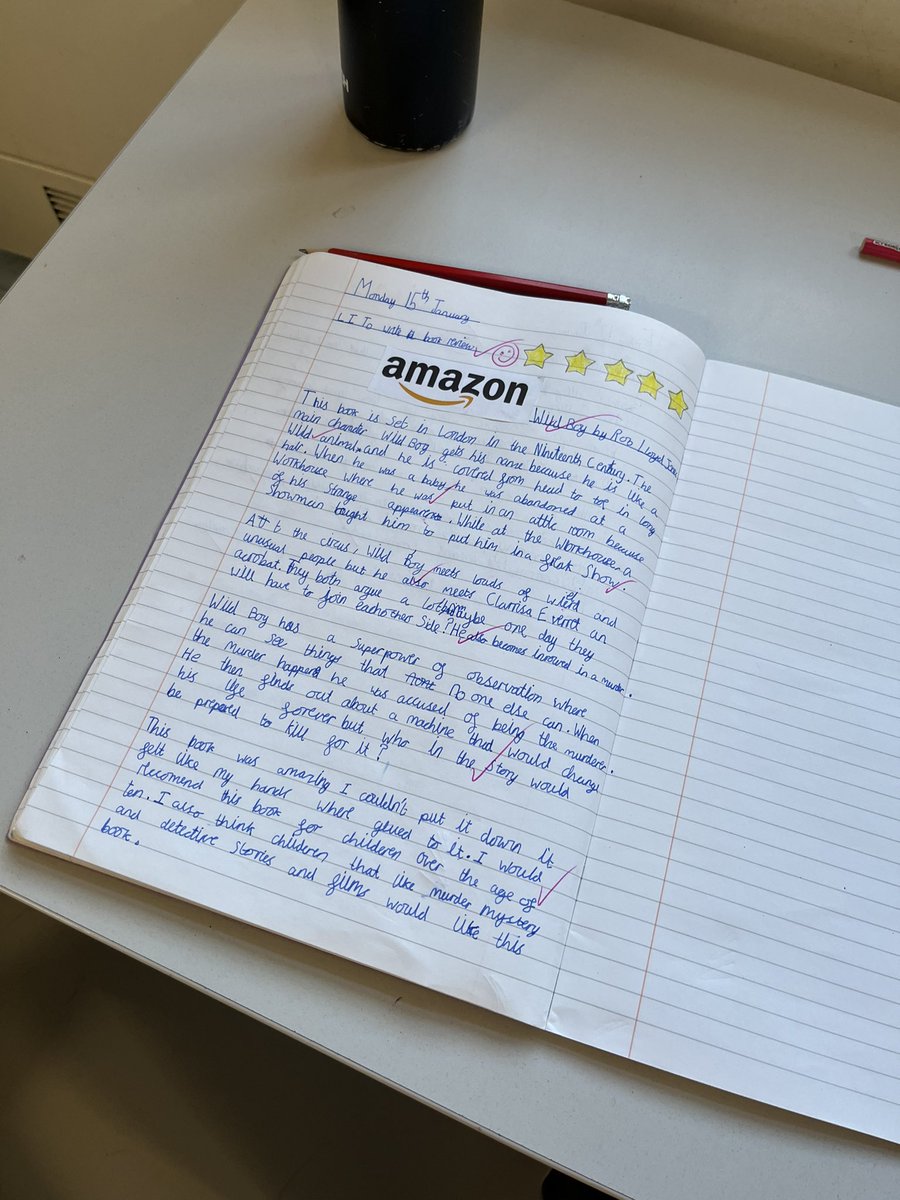 Monday 15th January
LI To write a book review
amazon
Wild Boy by Rob Lloyd Jones
This book is set in London in the Nineteenth Century. The
main charater Wild Boy gets his name because he is like a
Wild animal and he is covered from head to toe in long
hair. When he was a baby he was abandoned at a
Workhouse where he was put in an attic room because
of his strange appearance. While at the workhouse a
Showman bought him to put him in a freak Show.
At the circus, Wild Boy meets loads of weird and
unusual people but he also meets Clarissa Everett an
acrobat. They both argue a lot maybe one day they
will have to join eachother side? He also becomes involved in a murder.
Wild Boy has a Superpower of observation where
he can see things that no one else can. When
the murder happend he was accused of being the murderer.
He then finds out about a machine that would change
his life forever but who in the story would
be prepared to kill for it?
This book was amazing I couldn't put it down it
felt like my hands where glued to it. I would
recomend this book for children over the age of
ten. I also think children that like murder mystery
and detective stories and films would like this
book.